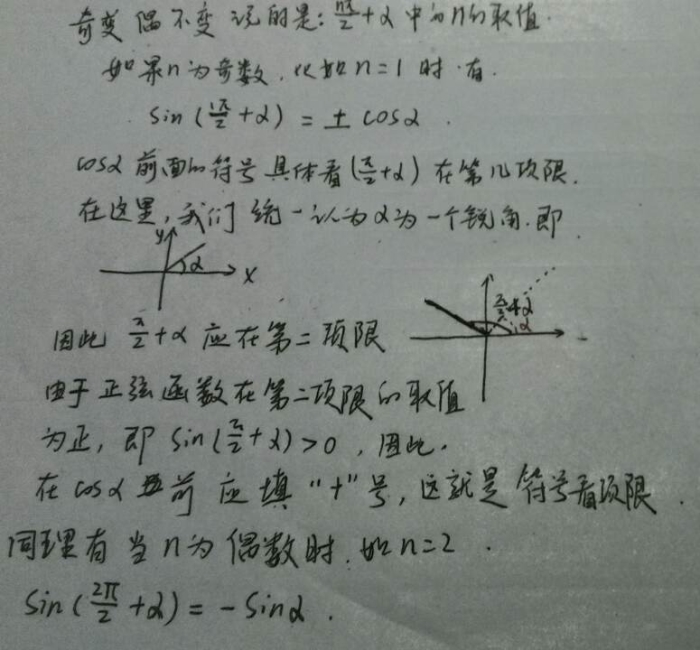 奇变偶不变说的是: nπ/2 + α 中的n的取值.
如果n为奇数,比如n=1时.有.
sin(1π/2+α) = ± cosα.
cosα前面的符号具体看(π/2+α)在第几项限.
在这里,我们统一认为α为一个锐角.即
y
α
x
π/2+α
α
因此 π/2+α 应在第二项限
由于正弦函数在第二项限的取值
为正,即 sin(π/2+α)>0,因此.
在cosα前应填"+"号,这就是符号看项限.
同理有当n为偶数时.如n=2.
Sin(2π/2+α) = -Sinα.